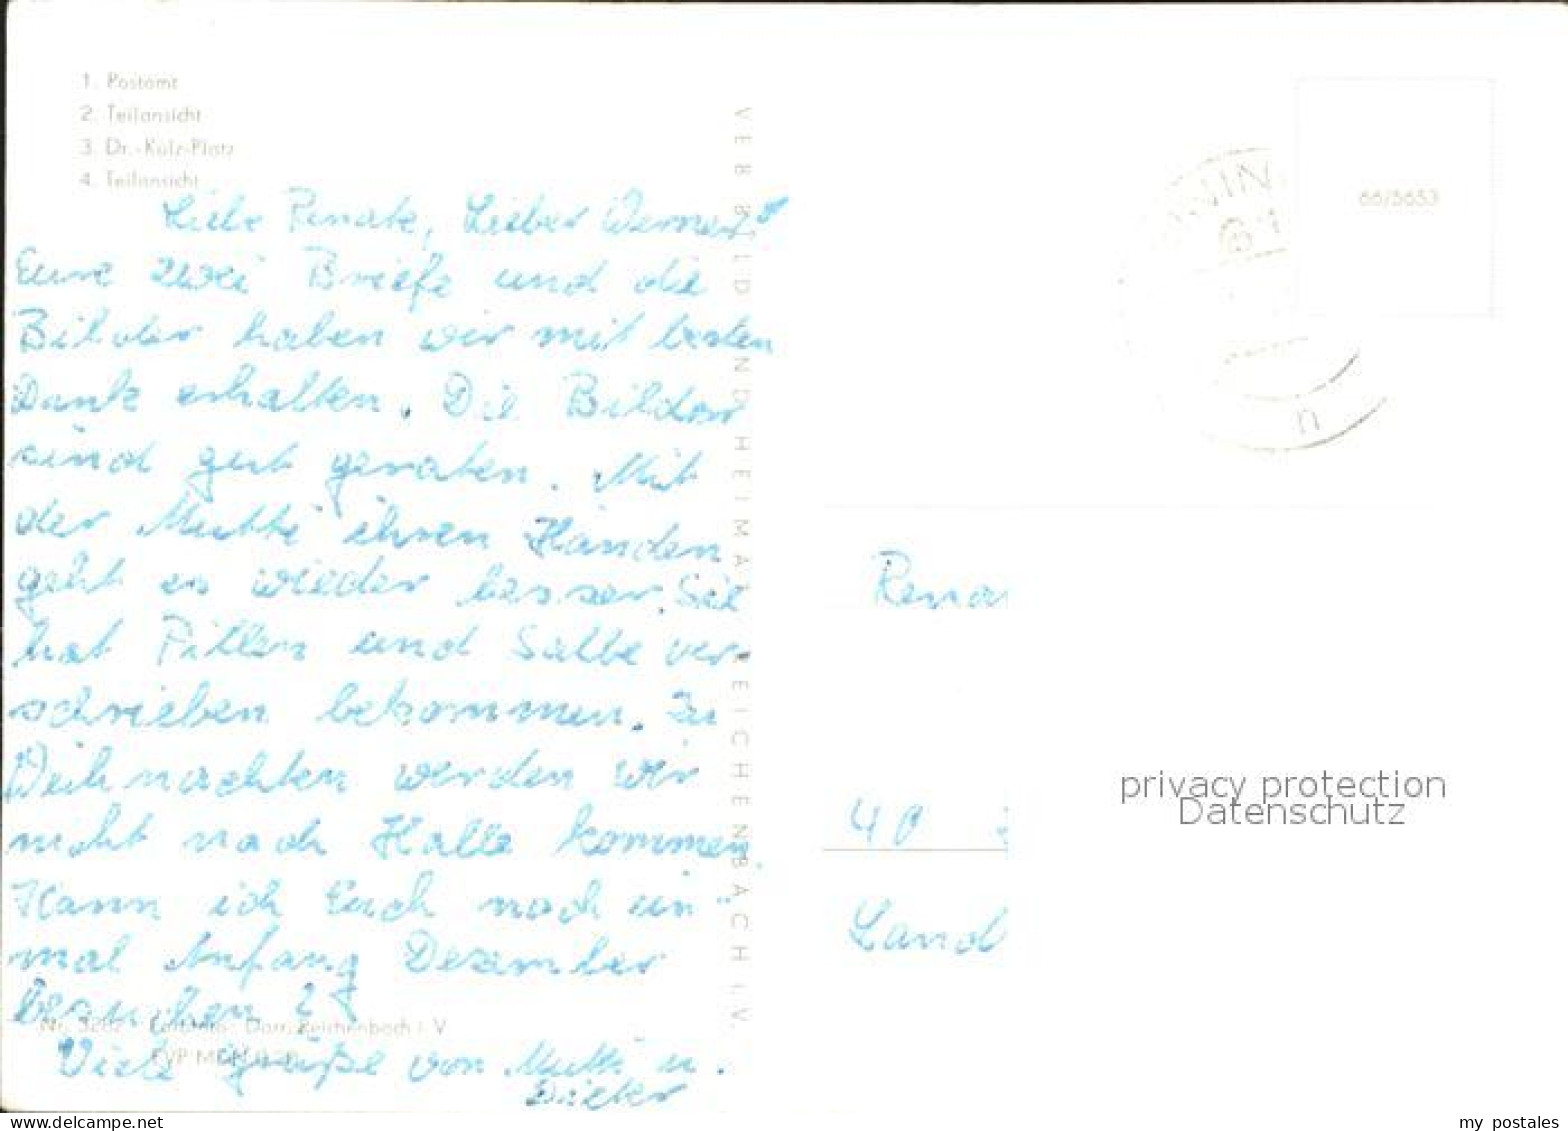 1. Postamt
2. Teilansicht
3. Dr.-Külz-Platz
4. Teilansicht
Liebe Renate, Lieber Werner!
Eure zwei Briefe und die
Bilder haben wir mit besten
Dank erhalten. Die Bilder
sind gut geraten. Mit
der Mutti ihren Händen
geht es wieder besser. Sie
hat Pillen und Salbe ver-
schrieben bekommen. Zu
Weihnachten werden wir
nicht nach Halle kommen.
Kann ich Euch noch ein-
mal Anfang Dezember
besuchen?
Viele Grüße von Mutti u.
Dieter
Reichenbach i. V.
VEB BILD UND HEIMAT REICHENBACH I. V.
66/5653
n
Rena
40
Land
privacy protection
Datenschutz
www.delcampe.net
my_postales